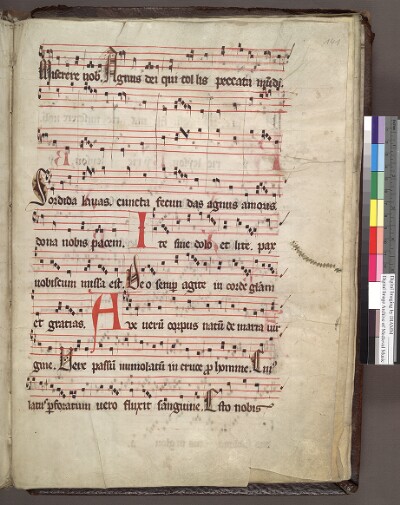 Miserere nob. Agnus dei qui tol lis peccata mūdi.
Sordida lauas. cuncta fecun das agnus amoris.
dona nobis pacem. Ite sine dolo et lite. pax
nobiscum missa est. Deo semp agite in corde glām
et gratias. Ave uerū corpus natū de maria uir
gine. Vere passū immolatū in cruce p homine. Cui
latus pforatum uero fluxit sanguine. Esto nobis